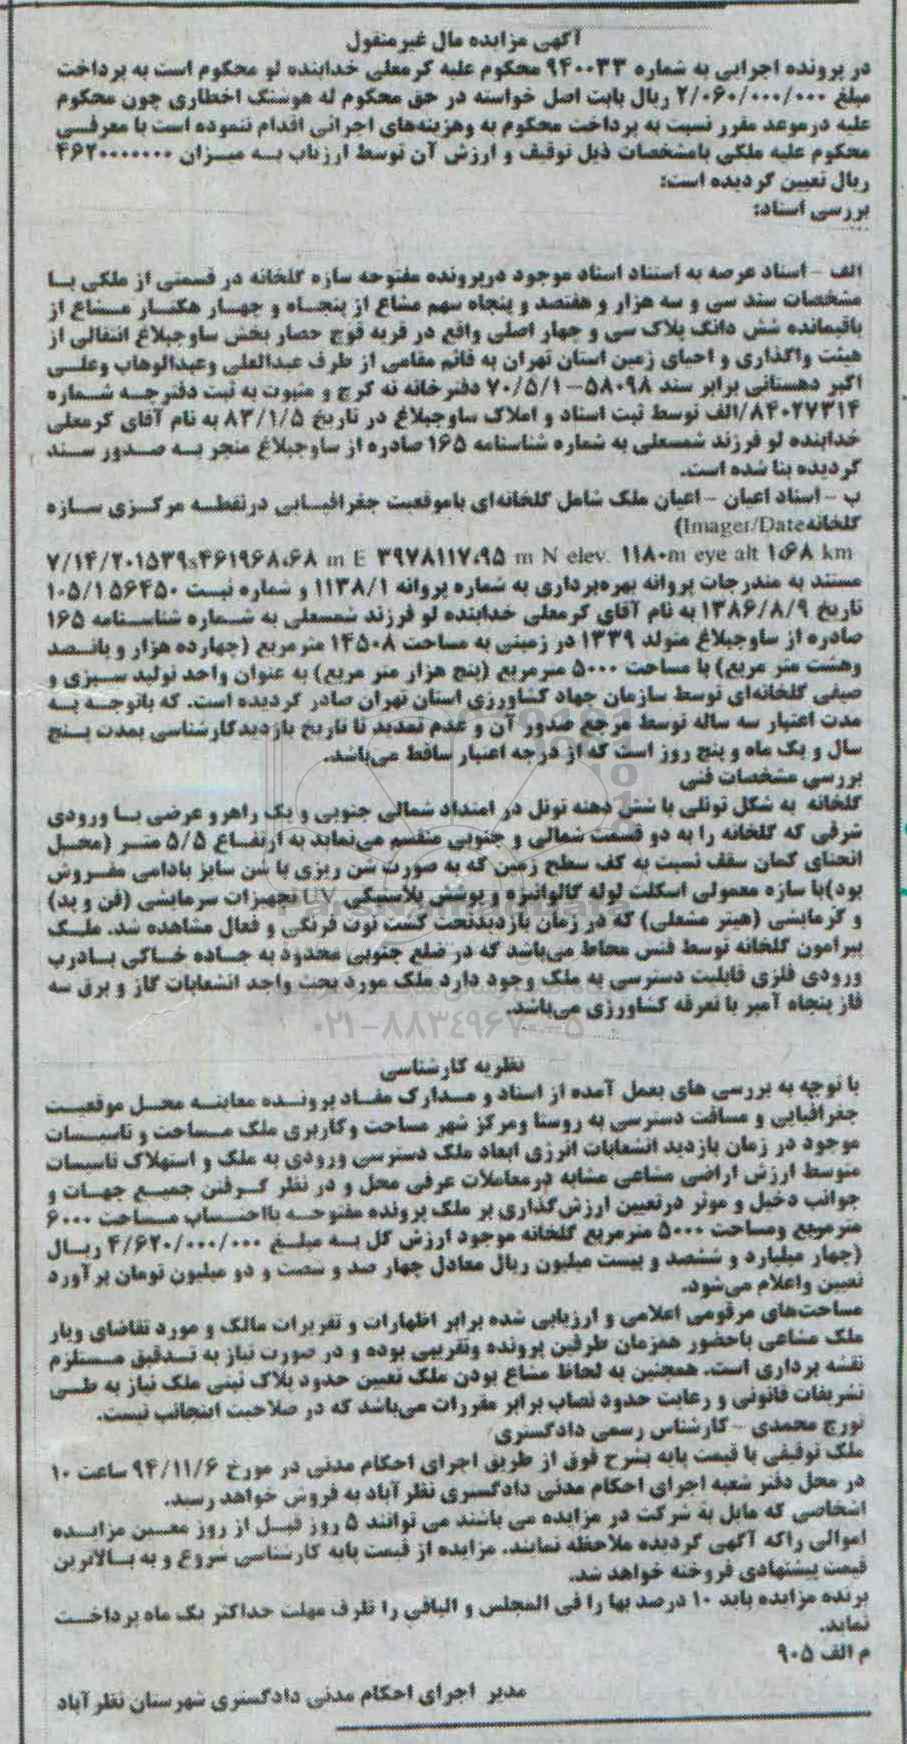 آگهی مزایده مال غیر منقول
در پرونده اجرایی به شماره ۹۴۰۰۳۳ محکوم علیه کرمعلی خدابنده لو محکوم است به پرداخت
مبلغ ۲/۰۶۰/۰۰۰/۰۰۰ ریال بابت اصل خواسته در حق محکوم له هوشنگ اخطاری چون محکوم
علیه درموعد مقرر نسبت به پرداخت محکوم به وهزینه‌های اجرائی اقدام ننموده است با معرفی
محکوم علیه ملکی بامشخصات ذیل توقیف و ارزش آن توسط ارزیاب به میزان ۴۶۲۰۰۰۰۰۰۰
ریال تعیین گردیده است:
بررسی اسناد:
الف - اسناد عرصه به استناد اسناد موجود درپرونده مفتوحه سازه گلخانه در قسمتی از ملکی با
مشخصات سند سی و سه هزار و هفتصد و پنجاه سهم مشاع از پنجاه و چهار هکتار مشاع از
باقیمانده شش دانگ پلاک سی و چهار اصلی واقع در قریه قوچ حصار بخش ساوجبلاغ انتقالی از
هیئت واگذاری و احیای زمین استان تهران به قائم مقامی از طرف عبدالعلی وعبدالوهاب وعلی
اکبر دهستانی برابر سند ۵۸۰۹۸-۷۰/۵/۱ دفترخانه نه کرج و مثبوت به ثبت دفترچه شماره
۸۴۰۲۷۳۱۴/الف توسط ثبت اسناد و املاک ساوجبلاغ در تاریخ ۸۳/۱/۵ به نام آقای کرمعلی
خدابنده لو فرزند شمسعلی به شماره شناسنامه ۱۶۵ صادره از ساوجبلاغ منجر به صدور سند
گردیده بنا شده است.
ب - اسناد اعیان - اعیان ملک شامل گلخانه‌ای باموقعیت جغرافیایی درنقطه مرکزی سازه
گلخانه Imager/Date)
۷/۱۴/۲۰۱۵۳۹s۴۶۱۹۶۸.۶۸ m E ۳۹۷۸۱۱۷.۹۵ m N elev. ۱۱۸۰m eye alt ۱.۶۸ km
مستند به مندرجات پروانه بهره‌برداری به شماره پروانه ۱۱۳۸/۱ و شماره نسبت ۱۰۵/۱۵۶۴۵۰
تاریخ ۱۳۸۶/۸/۹ به نام آقای کرمعلی خدابنده لو فرزند شمسعلی به شماره شناسنامه ۱۶۵
صادره از ساوجبلاغ متولد ۱۳۳۹ در زمینی به مساحت ۱۴۵۰۸ متر مربع (چهارده هزار و پانصد
وهشت متر مربع) با مساحت ۵۰۰۰ مترمربع (پنج هزار متر مربع) به عنوان واحد تولید سبزی و
صیفی گلخانه‌ای توسط سازمان جهاد کشاورزی استان تهران صادر گردیده است. که باتوجه به
مدت اعتبار سه ساله توسط مرجع صدور آن و عدم تمدید تا تاریخ بازدیدکارشناسی بمدت پنج
سال و یک ماه و پنج روز است که از درجه اعتبار ساقط می‌باشد.
بررسی مشخصات فنی
گلخانه به شکل تونلی با شش دهنه تونل در امتداد شمالی جنوبی و یک راهرو عرضی با ورودی
شرقی که گلخانه را به دو قسمت شمالی و جنوبی منقسم می‌نماید به ارتفاع ۵/۵ متر (محل
انحنای کمان سقف نسبت به کف سطح زمین که به صورت شن ریزی با شن سایز بادامی مفروش
بود)با سازه معمولی اسکلت لوله گالوانیزه و پوشش پلاستیکی UV با تجهیزات سرمایشی (فن و پد)
و گرمایشی (هیتر مشعلی) که در زمان بازدیدتحت کشت توت فرنگی و فعال مشاهده شد. ملک
پیرامون گلخانه توسط فنس محاط می‌باشد که در ضلع جنوبی محدود به جاده خاکی بادرب
ورودی فلزی قابلیت دسترسی به ملک وجود دارد ملک مورد بحث واجد انشعابات گاز و برق سه
فاز پنجاه آمپر با تعرفه کشاورزی می‌باشد.
۰۲۱-۸۸۳٤۹۶۷۰-۵
نظریه کارشناسی
با توجه به بررسی های بعمل آمده از اسناد و مدارک مفاد پرونده معاینه محل موقعیت
جغرافیایی و مسافت دسترسی به روستا ومرکز شهر مساحت وکاربری ملک مساحت و تاسیسات
موجود در زمان بازدید انشعابات انرژی ابعاد ملک دسترسی ورودی به ملک و استهلاک تاسیسات
متوسط ارزش اراضی مشاعی مشابه درمعاملات عرفی محل و در نظر گرفتن جمیع جهات و
جوانب دخیل و موثر درتعیین ارزش‌گذاری بر ملک پرونده مفتوحه بااحتساب مساحت ۶۰۰۰
مترمربع ومساحت ۵۰۰۰ مترمربع گلخانه موجود ارزش کل به مبلغ ۴/۶۲۰/۰۰۰/۰۰۰ ریال
(چهار میلیارد و ششصد و بیست میلیون ریال معادل چهار صد و شصت و دو میلیون تومان برآورد
تعیین واعلام می‌شود.
مساحت‌های مرقومی اعلامی و ارزیابی شده برابر اظهارات و تقریرات مالک و مورد تقاضای وبار
ملک مشاعی باحضور همزمان طرفین پرونده وتقریبی بوده و در صورت نیاز به تدقیق مستلزم
نقشه برداری است. همچنین به لحاظ مشاع بودن ملک تعیین حدود پلاک ثبتی ملک نیاز به طی
تشریفات قانونی و رعایت حدود نصاب برابر مقررات می‌باشد که در صلاحیت اینجانب نیست.
تورج محمدی - کارشناس رسمی دادگستری
ملک توقیفی با قیمت پایه بشرح فوق از طریق اجرای احکام مدنی در مورخ ۹۴/۱۱/۶ ساعت ۱۰
در محل دفتر شعبه اجرای احکام مدنی دادگستری نظرآباد به فروش خواهد رسید.
اشخاصی که مایل به شرکت در مزایده می باشند می توانند ۵ روز قبل از روز معین مزایده
اموالی راکه آگهی گردیده ملاحظه نمایند. مزایده از قیمت پایه کارشناسی شروع و به بالاترین
قیمت پیشنهادی فروخته خواهد شد.
برنده مزایده باید ۱۰ درصد بها را فی المجلس و الباقی را ظرف مهلت حداکثر یک ماه پرداخت
نماید.
م الف ۹۰۵
مدیر اجرای احکام مدنی دادگستری شهرستان نظرآباد